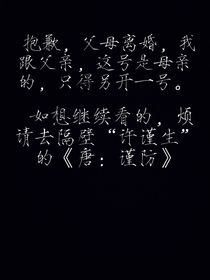 抱歉，父母离婚，我
跟父亲，这号是母亲
的，只得另开一号。
如想继续看的，烦
请去隔壁“许谨生”
的《唐：谨防》